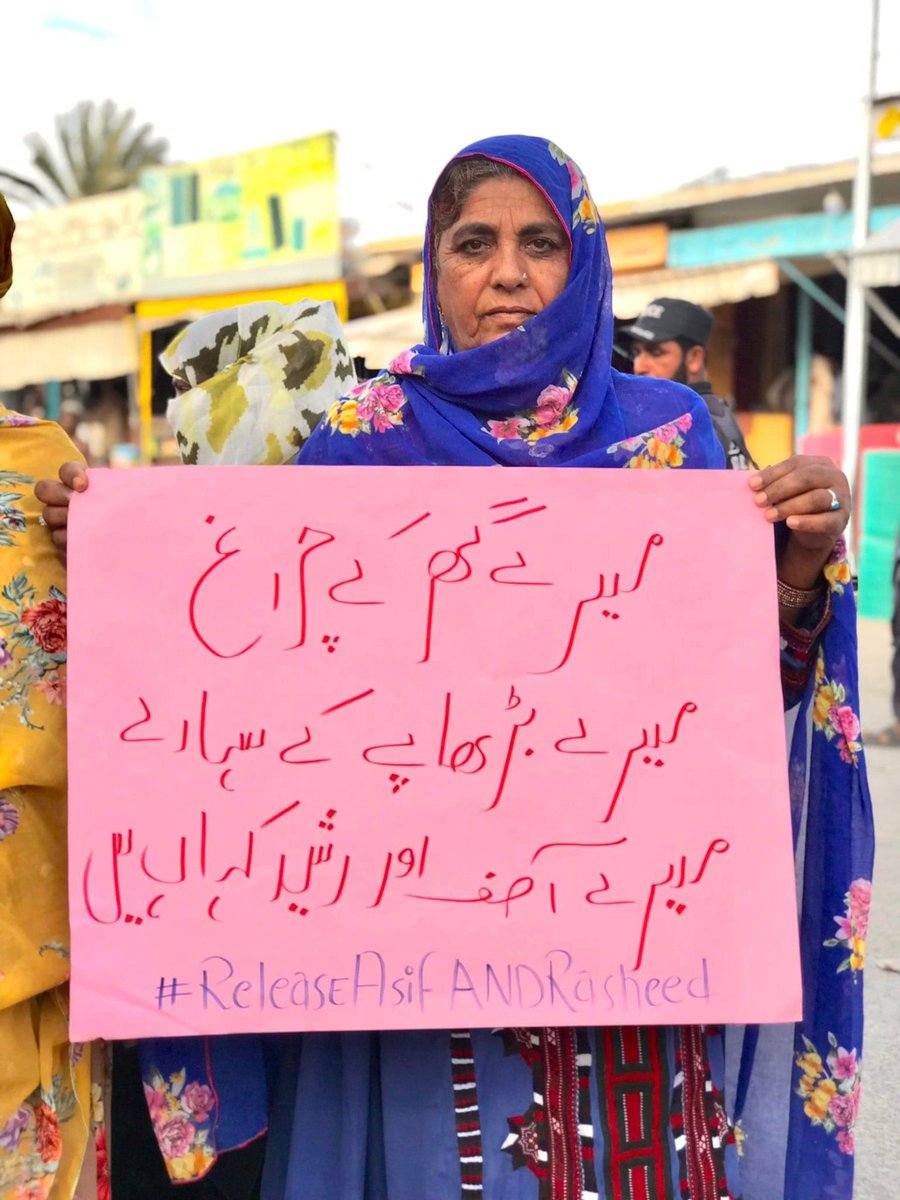 میرے گھر کے چراغ
میرے بڑھاپے کے سہارے
میرے آصف اور رشید کہاں ہیں
#ReleaseAsifANDRasheed